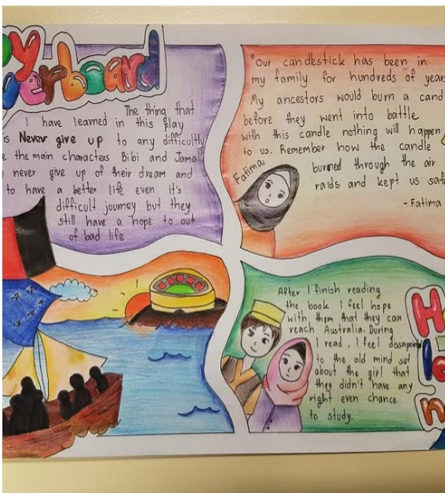 oy
verboard
The thing that
I have learned in this play
is Never give up to any difficulty
e the main characters Bibi and Jamal
never give up of their dream and
to have a better life even it's
difficult journey but they
still have a hope to out
of bad life
"Our candlestick has been in
my family for hundreds of year
My ancestors would burn a cand
before they went into battle
with this candle nothing will happen
to us. Remember how the candle
burned through the air
raids and kept us saf
- Fatima
Fatima
After I finish reading
the book I feel hope
with them that they can
reach Australia. During
I read, I feel
to the old mind set
about the girl that
they didn't have any
right even chance
to study.